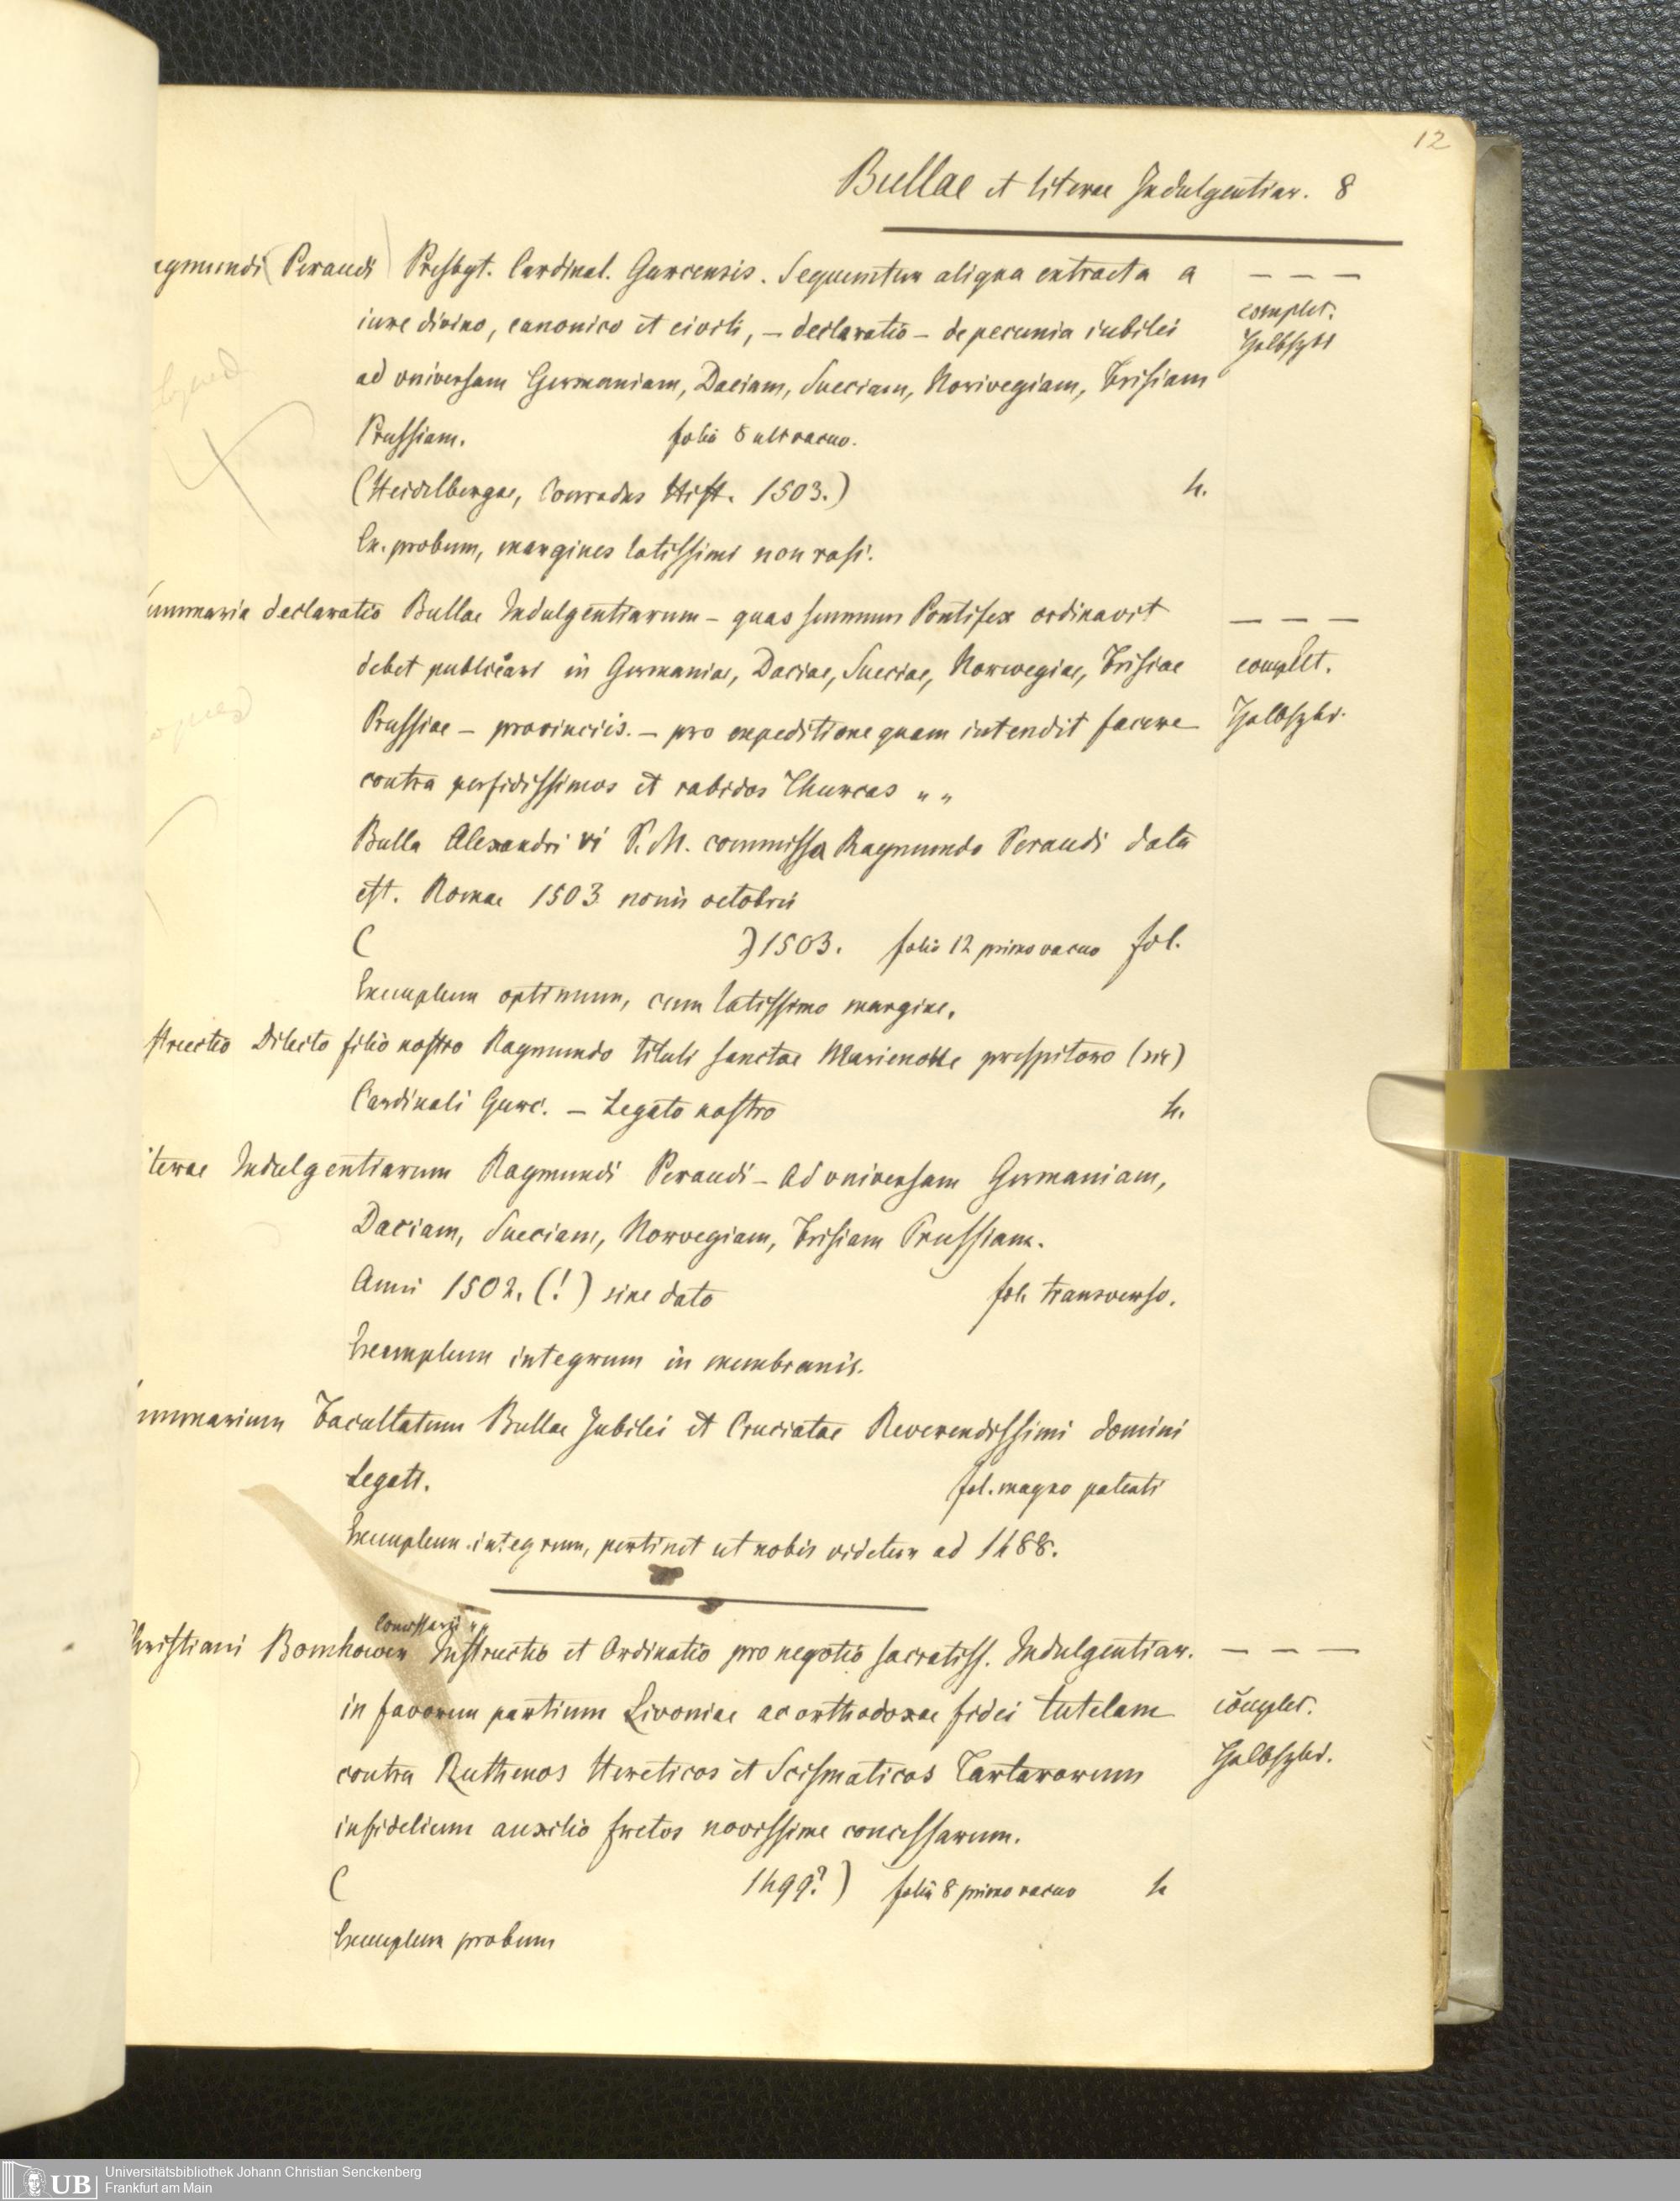 12
Bullae et literae Indulgentiar. 8
aymundi (Peraudi) Presbyt. Cardinal. Gurcensis. Sequuntur aliqua extracta a – – –
iure divino, canonico et civili, – declaratio – de pecunia iubilei complet.
ad vniversam Germaniam, Daciam, Sueciam, Norivegiam, Frisiam Halbfzbd
Prussiam. folia 8 ult vacuo.
(Heidelbergae, Conradus Hist. 1503.) 4.
Ex. probum, margines latissimi non rasi.
ummaria declaratio Bullae Indulgentiarum – quas summus Pontifex ordinavit – – –
debet publicari in Germaniae, Daciae, Sueciae, Norwegiae, Frisiae complet.
Prussiae – provinciis. – pro expeditione quam intendit facere Halbfzbd.
contra perfidissimos et rabidos Thurcas „ „
Bulla Alexandri vi P. M. commissa Raymundo Peraudi data
est. Romae 1503 nonis octobris
( ) 1503. folia 12 primo vacuo fol.
Exemplum optimum, cum latissimo margine.
structio Dilecto filio nostro Raymundo tituli sanctae Marienoue prespitero (sic)
Cardinali Gurc. – Legato nostro 4.
iterae Indulgentiarum Raymundi Peraudi – Ad vniversam Germaniam,
Daciam, Sueciam, Norvegiam, Frisiam Prussiam.
Anni 1502. (!) sine dato fol. transverso.
Exemplum integrum in membranis.
ummarium Facultatum Bullae Jubilei et Cruciatae Reverendissimi domini
Legati. fol. magno patenti
Exemplum integrum, pertinet ut nobis videtur ad 1488.
Christiani Bomhower Instructio et Ordinatio pro negotio sacratiss. Indulgentiar. – – –
in favorem partium Livoniae ac orthodoxae fidei tutelam complet.
contra Ruthenos Hereticos et Scismaticos Tartarorum Halbfzbd.
infidelium auxilio fretos novissime concessarum.
( 1499?) folia 8 primo vacuo 4
Exemplum probum
UB
Universitätsbibliothek Johann Christian Senckenberg
Frankfurt am Main